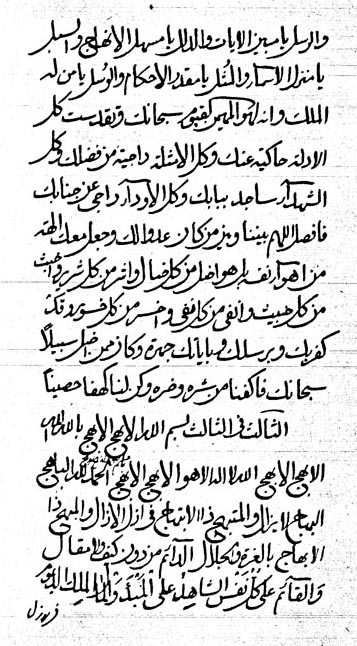 والرسل يا مبين الايات والدلائل يا مسهل الانهاج والسبل
يا منزل الاسماء والمثل يا مقدر الاحكام والوسل يا من له
الملك وانه لهو المهيمن القيوم سبحانك وتقدست كل
الادلة حاكية عنك وكل الامثلة راجية من فضلك وكل
الشهداء ساجد ببابك وكل الاوداء راجى عن جنابك
فافصل اللهم بيننا وبين من كان عدوا لك وجعل معك الهه
من اهواء نفسه بل هو اضل من كل ضال واشر من كل شرير واخبث
من كل خبيث وانفى من كل منفى واخسر من كل خسر وقد
كفر بك وبرسلك وباياتك جهرة وكان ممن اضل سبيلاً
سبحانك فاكفنا من شره وضره وكن لنا كهفا حصيناً
الثالث فى الثالث بسم الله الابهج الابهج بالله الله
الابهج الابهج الله لا اله الا هو الابهج الابهج الباهج
البهاج لايزال والمبتهج ذا الابتهاج فى ازل الازال والمبهج ذا
الابهاج بالعزة والجلال الدائم من دون كيف ولا مقال
والقائم على كل نفس الشاهد على المبدء والمآل الملك